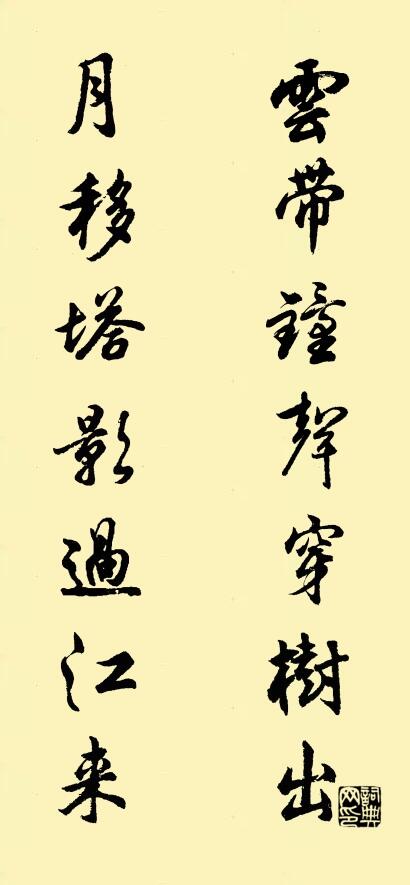 雲帶鐘聲穿樹出
月移塔影過江来
詞典网印